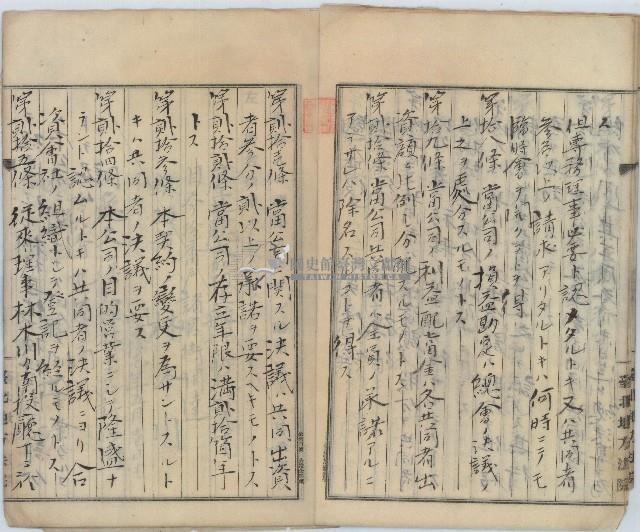 ス
但専務理事必要ト認メタルトキ又ハ共同者
参名以上ノ請求アリタルトキハ何時ニテモ
臨時會ヲ開クコトヲ得
第拾八條 當公司ノ損益勘定ハ總會ノ決議ノ
上之ヲ處分スルモノトス
第拾九條 當公司ノ利益配當金ハ各共同者出
資額ニ比例シ分配スルモノトス
第貳拾條 當公司共同者ハ全員ノ承諾アルニ
アラサレハ除名スルコトヲ得ス
第貳拾壱條 當公司ニ関スル決議ハ共同出資
者参分ノ貳以上ノ承諾ヲ要スヘキモノトス
第貳拾貳條 當公司ノ存立年限ハ満貳拾箇年
トス
第貳拾参條 本契約ノ變更ヲ為サントスルト
キハ共同者ノ決議ヲ要ス
第貳拾四條 本公司ノ目的営業ニシテ隆盛ナ
ラント認ムルトキハ共同者ノ決議ニヨリ合
資會社ノ組織トシテ登記ヲ経ルモノトス
第貳拾五條 従来理事林木川カ
臺北地方法院